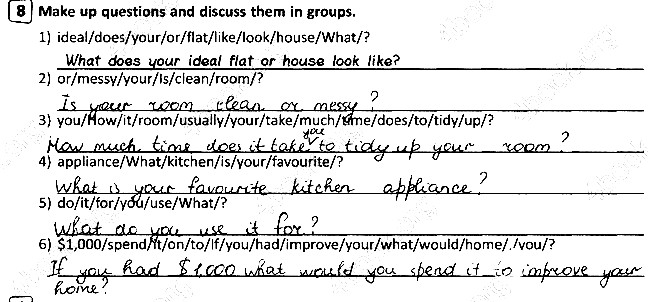 8 Make up questions and discuss them in groups.
1) ideal/does/your/or/flat/like/look/house/What/?
What does your ideal flat or house look like?
2) or/messy/your/Is/clean/room/?
Is your room clean or messy?
3) you/How/it/room/usually/your/take/much/time/does/to/tidy/up/?
you
How much time does it take to tidy up your room?
4) appliance/What/kitchen/is/your/favourite/?
What is your favourite kitchen appliance?
5) do/it/for/you/use/What/?
What do you use it for?
6) $1,000/spend/it/on/to/If/you/had/improve/your/what/would/home/,/you/?
If you had $1,000 what would you spend it to improve your
home?